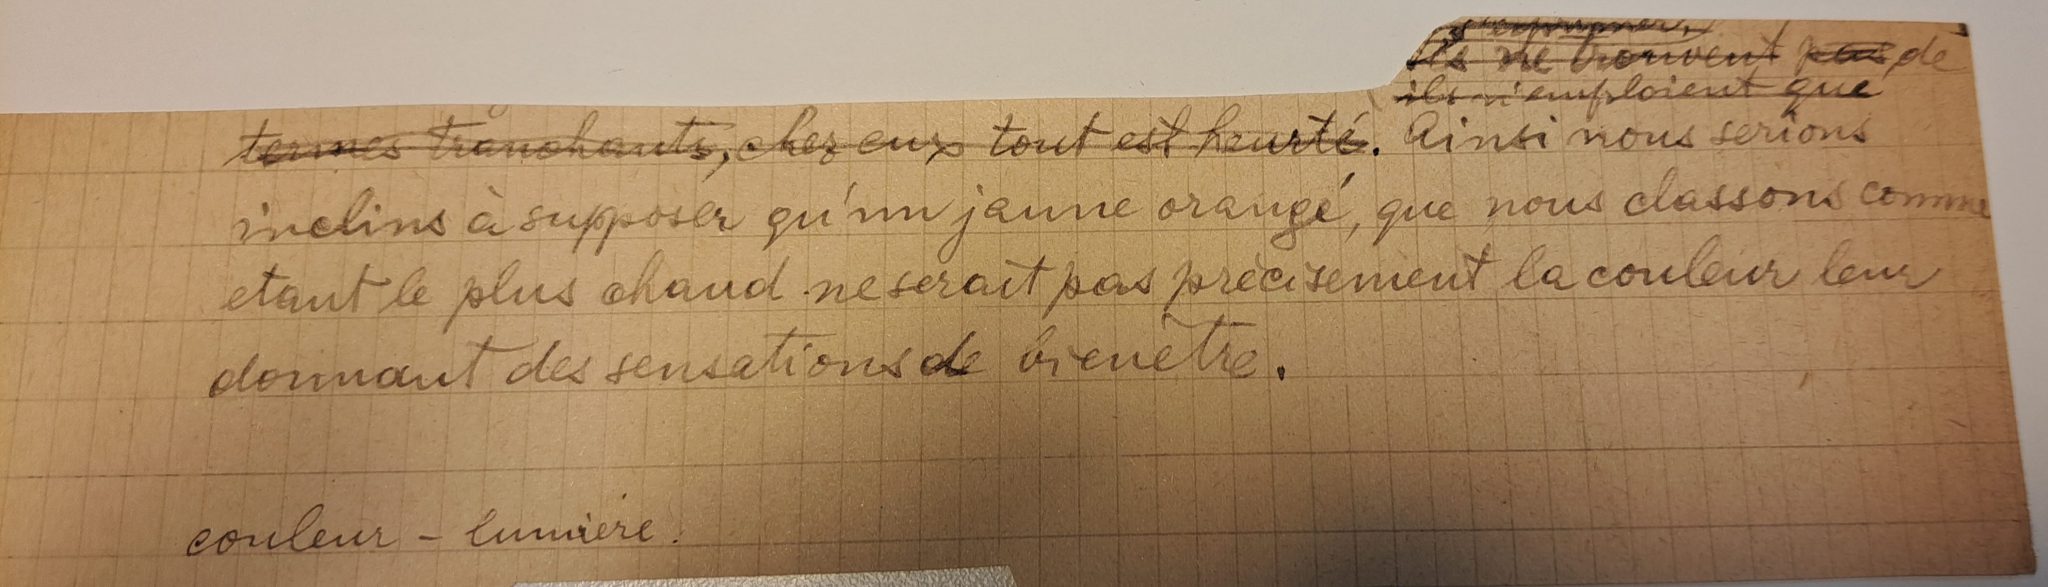 s'exprimer,
ils ne trouvent pas de
ils n'emploient que
termes tranchants, chez eux tout est heurté. Ainsi nous serions
inclins à supposer qu'un jaune orangé, que nous classons comme
etant le plus chaud ne serait pas précisement la couleur leur
donnant des sensations de bienêtre.
couleur - lumière.